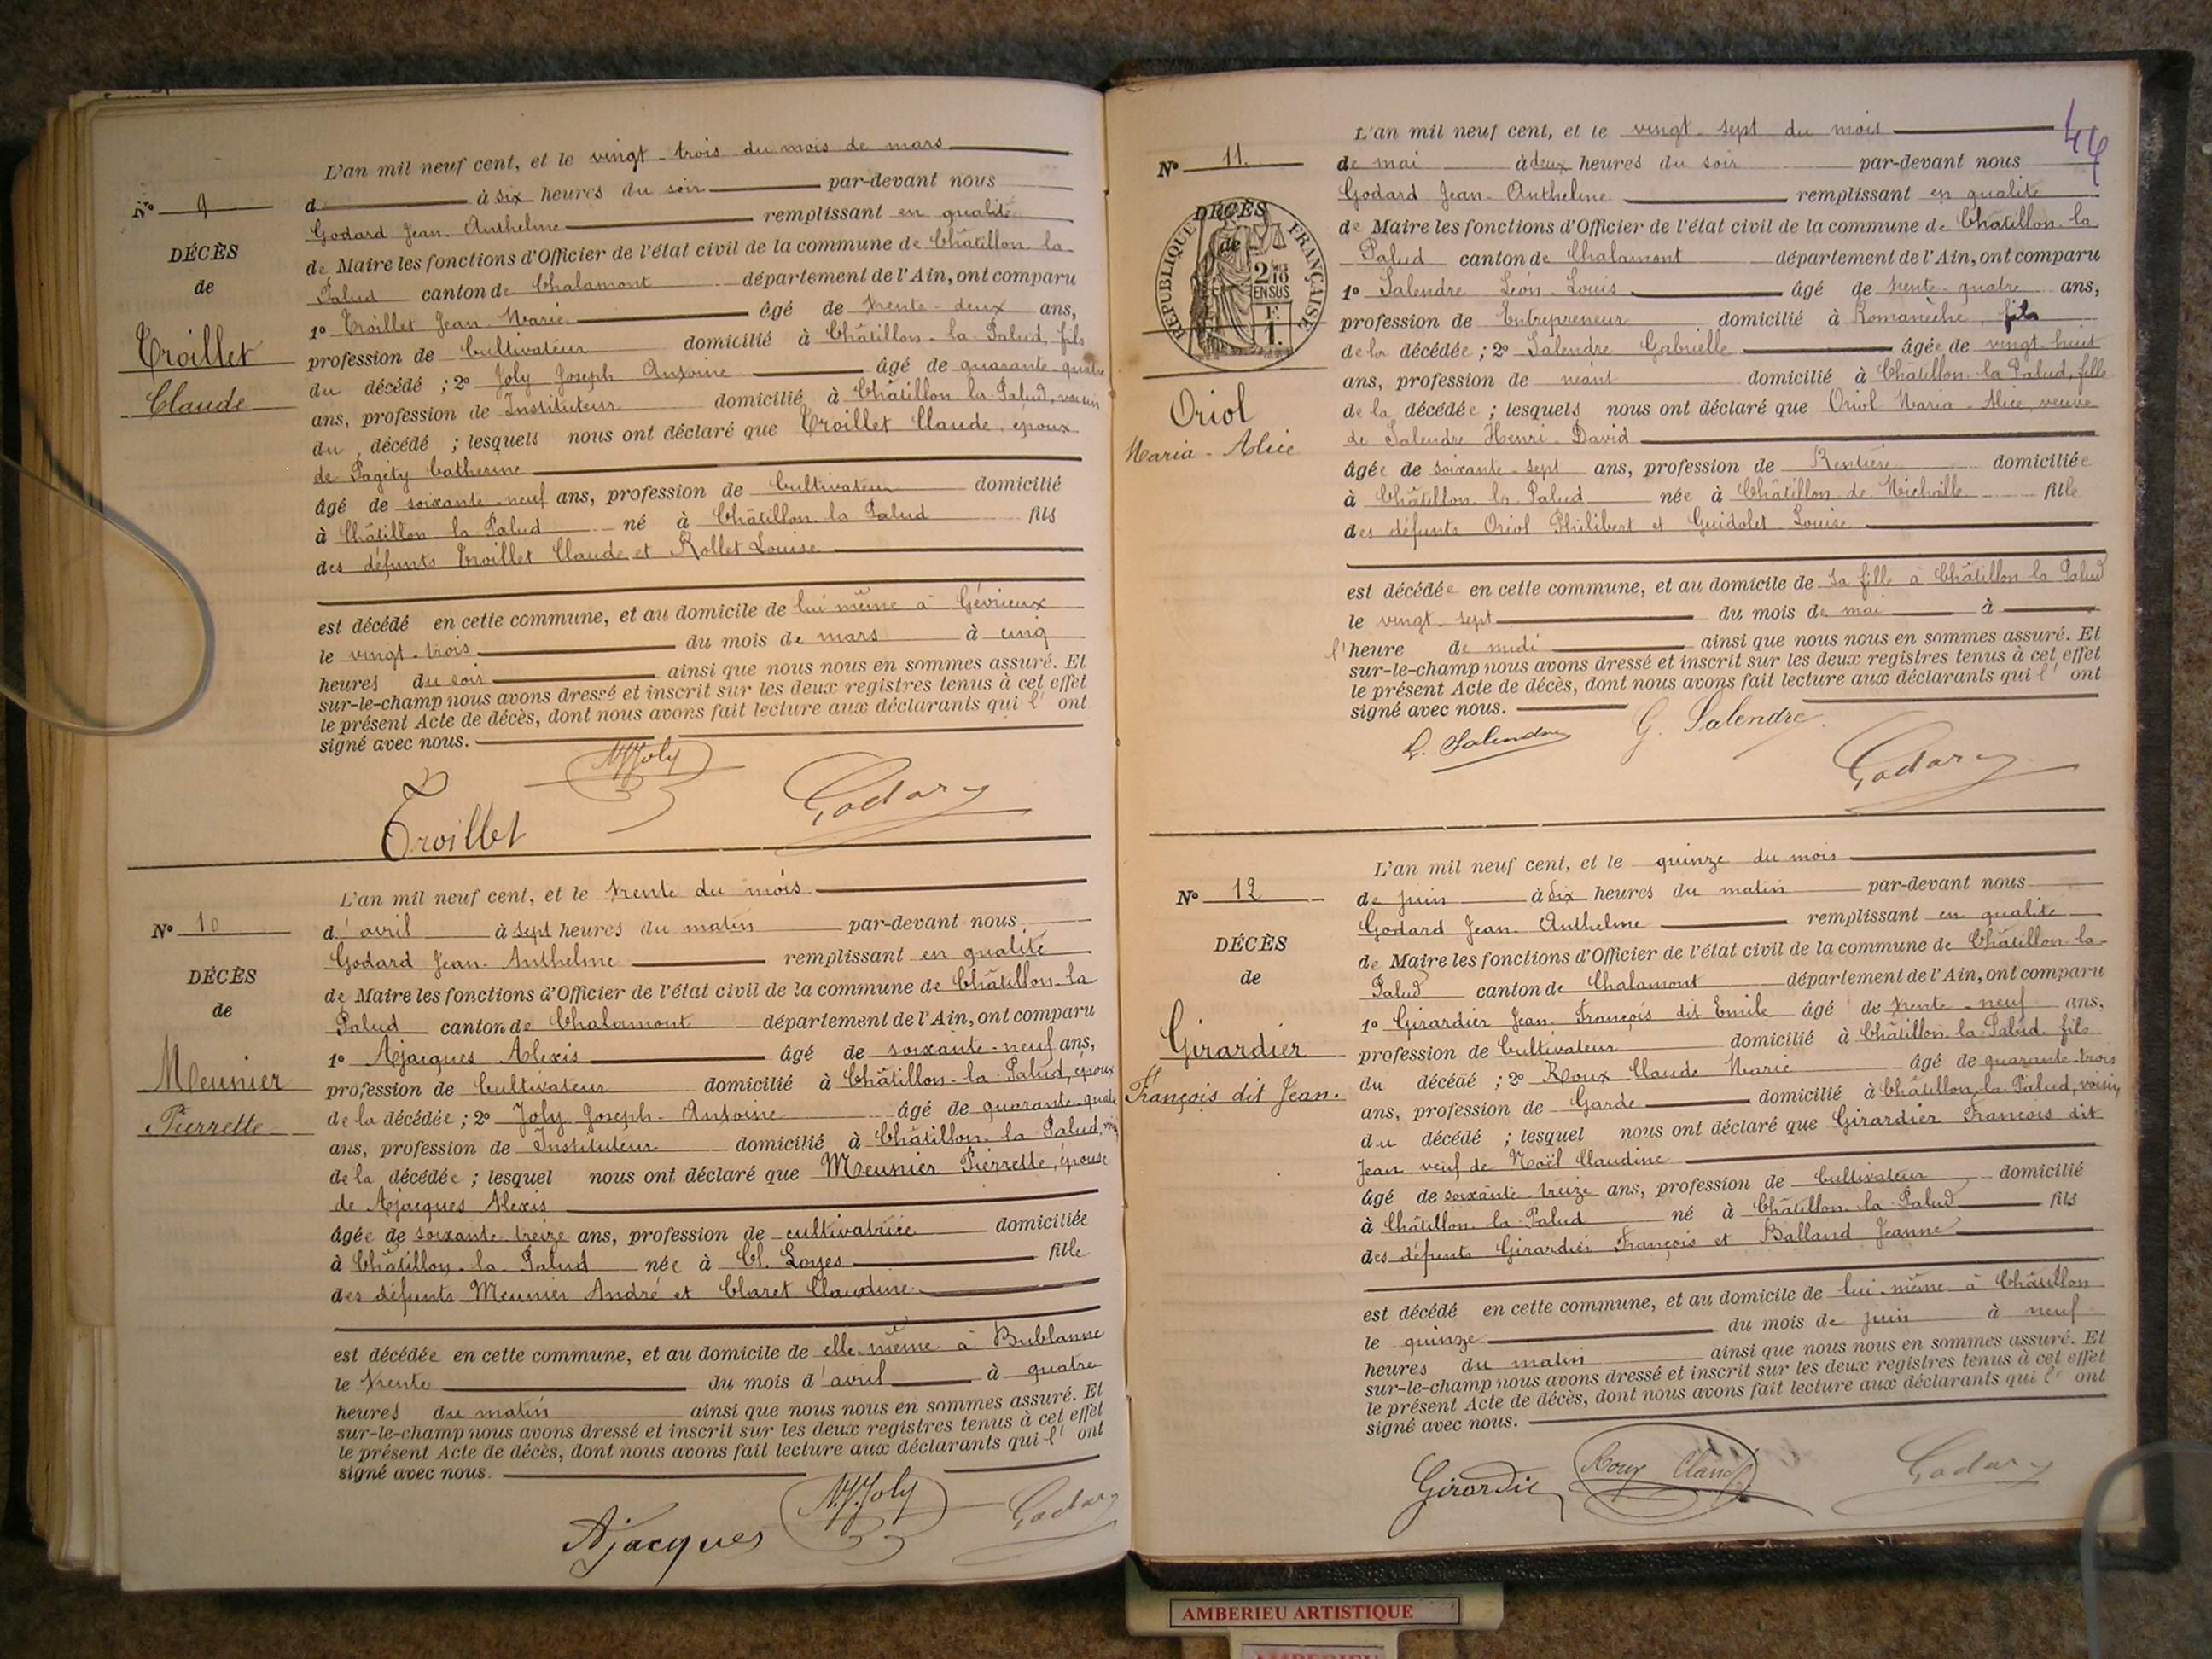 L'an mil neuf cent, et le vingt-trois du mois de mars
N° 9
d à six heures du soir par-devant nous
Godard Jean-Anthelme remplissant en qualité
DÉCÈS
de Maire les fonctions d'Officier de l'état civil de la commune de Châtillon-la-
de
Palud canton de Chalamont département de l'Ain, ont comparu
1° Troillet Jean-Marie âgé de trente-deux ans,
Troillet
profession de Cultivateur domicilié à Châtillon-la-Palud, fils
du décédé ; 2° Joly Joseph Antoine âgé de quarante-quatre
Claude
ans, profession de Instituteur domicilié à Châtillon-la-Palud, voisin
du décédé ; lesquels nous ont déclaré que Troillet Claude, époux
de Pagéty Catherine
âgé de soixante-neuf ans, profession de Cultivateur domicilié
à Châtillon-la-Palud né à Châtillon-la-Palud fils
des défunts Troillet Claude et Rollet Louise
est décédé en cette commune, et au domicile de lui-même à Gévrieux
le vingt-trois du mois de mars à cinq
heures du soir ainsi que nous nous en sommes assuré. Et
sur-le-champ nous avons dressé et inscrit sur les deux registres tenus à cet effet
le présent Acte de décès, dont nous avons fait lecture aux déclarants qui l' ont
signé avec nous.
Joly
Godard
Troillet
L'an mil neuf cent, et le trente du mois
N° 10
d'avril à sept heures du matin par-devant nous
Godard Jean-Anthelme remplissant en qualité
DÉCÈS
de Maire les fonctions d'Officier de l'état civil de la commune de Châtillon-la
de
Palud canton de Chalamont département de l'Ain, ont comparu
1° Ajacques Alexis âgé de soixante-neuf ans,
Meunier
profession de Cultivateur domicilié à Châtillon-la-Palud, époux
de la décédée ; 2° Joly Joseph-Antoine âgé de quarante-quatre
Pierrette
ans, profession de Instituteur domicilié à Châtillon-la-Palud,
de la décédée ; lesquel nous ont déclaré que Meunier Pierrette, épouse
de Ajacques Alexis
âgée de soixante treize ans, profession de cultivatrice domiciliée
à Châtillon-la-Palud née à Loyes fille
des défunts Meunier André et Claret Claudine
est décédée en cette commune, et au domicile de elle-même à Bublanne
le trente du mois d'avril à quatre
heures du matin ainsi que nous nous en sommes assuré. Et
sur-le-champ nous avons dressé et inscrit sur les deux registres tenus à cet effet
le présent Acte de décès, dont nous avons fait lecture aux déclarants qui l' ont
signé avec nous.
Joly
Godard
Ajacques
L'an mil neuf cent, et le vingt-sept du mois
N° 11
de mai à deux heures du soir par-devant nous
Godard Jean-Anthelme remplissant en qualité
DÉCÈS
de
RÉPUBLIQUE FRANÇAISE
de Maire les fonctions d'Officier de l'état civil de la commune de Châtillon-la
Palud canton de Chalamont département de l'Ain, ont comparu
1° Salendre Léon-Louis âgé de trente-quatre ans,
profession de Entrepreneur domicilié à Romanèche, fils
de la décédée ; 2° Salendre Gabrielle âgée de vingt-huit
ans, profession de néant domicilié à Châtillon-la-Palud, fille
Oriol
de la décédée ; lesquels nous ont déclaré que Oriol Maria-Alice, veuve
Maria-Alice
de Salendre Henri-David
âgée de soixante-sept ans, profession de Rentière domiciliée
à Châtillon-la-Palud née à Châtillon-de-Michaille fille
des défunts Oriol Philibert et Guidolet Louise
est décédée en cette commune, et au domicile de sa fille à Châtillon la Palud
le vingt-sept du mois de mai à
l'heure de midi ainsi que nous nous en sommes assuré. Et
sur-le-champ nous avons dressé et inscrit sur les deux registres tenus à cet effet
le présent Acte de décès, dont nous avons fait lecture aux déclarants qui l' ont
signé avec nous.
L. Salendre
G. Salendre
Godard
L'an mil neuf cent, et le quinze du mois
N° 12
de juin à dix heures du matin par-devant nous
Godard Jean-Anthelme remplissant en qualité
DÉCÈS
de Maire les fonctions d'Officier de l'état civil de la commune de Châtillon-la-
de
Palud canton de Chalamont département de l'Ain, ont comparu
1° Girardier Jean-François dit Emile âgé de trente-neuf ans,
Girardier
profession de Cultivateur domicilié à Châtillon-la-Palud, fils
du décédé ; 2° Roux Claude Marie âgé de quarante-trois
François dit Jean.
ans, profession de Garde domicilié à Châtillon-la-Palud, voisin
du décédé ; lesquel nous ont déclaré que Girardier François dit
Jean veuf de Noël Claudine
âgé de soixante-treize ans, profession de Cultivateur domicilié
à Châtillon-la-Palud né à Châtillon-la-Palud fils
des défunts Girardier François et Balland Jeanne
est décédé en cette commune, et au domicile de lui-même à Châtillon
le quinze du mois de juin à neuf
heures du matin ainsi que nous nous en sommes assuré. Et
sur-le-champ nous avons dressé et inscrit sur les deux registres tenus à cet effet
le présent Acte de décès, dont nous avons fait lecture aux déclarants qui l' ont
signé avec nous.
Girardier
Roux Claude
Godard
AMBERIEU ARTISTIQUE
AMBERIEU